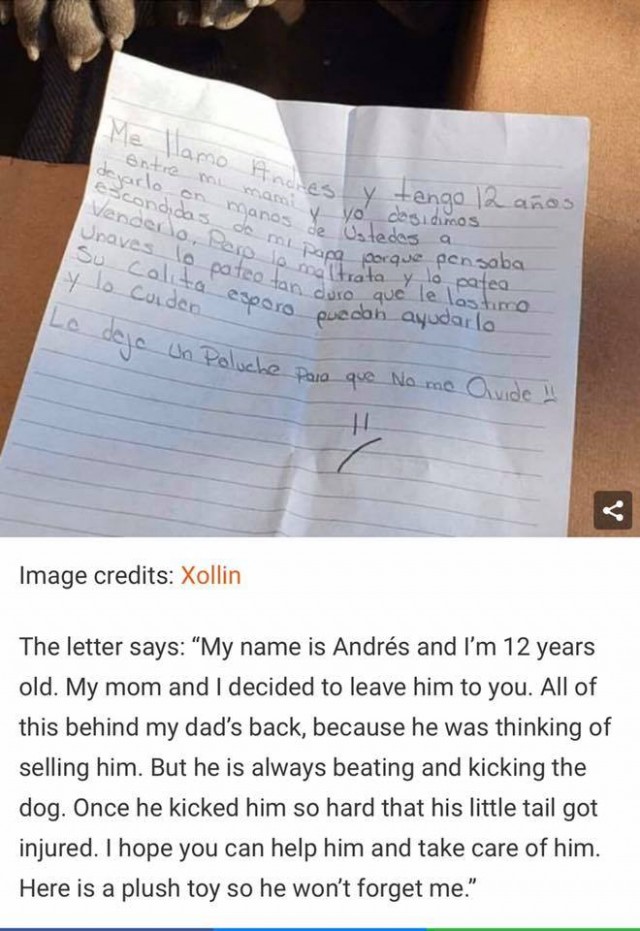 Me llamo Andres y tengo 12 años
entre mi mami y yo desidimos
dejarlo en manos de Ustedes a
escondidas de mi papa porque pensaba
Venderlo. Pero lo maltrata y lo patea
Unaves lo pateo tan duro que le lastimo
Su Colita espero puedan ayudarlo
y lo Cuiden
Le deje Un Peluche Para que No me Olvide !!
Image credits: Xollin
The letter says: “My name is Andrés and I’m 12 years
old. My mom and I decided to leave him to you. All of
this behind my dad’s back, because he was thinking of
selling him. But he is always beating and kicking the
dog. Once he kicked him so hard that his little tail got
injured. I hope you can help him and take care of him.
Here is a plush toy so he won’t forget me.”